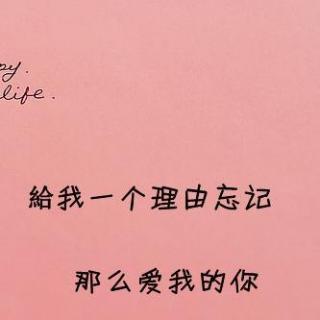 py.
life.
給我一个理由忘记
那么爱我的你